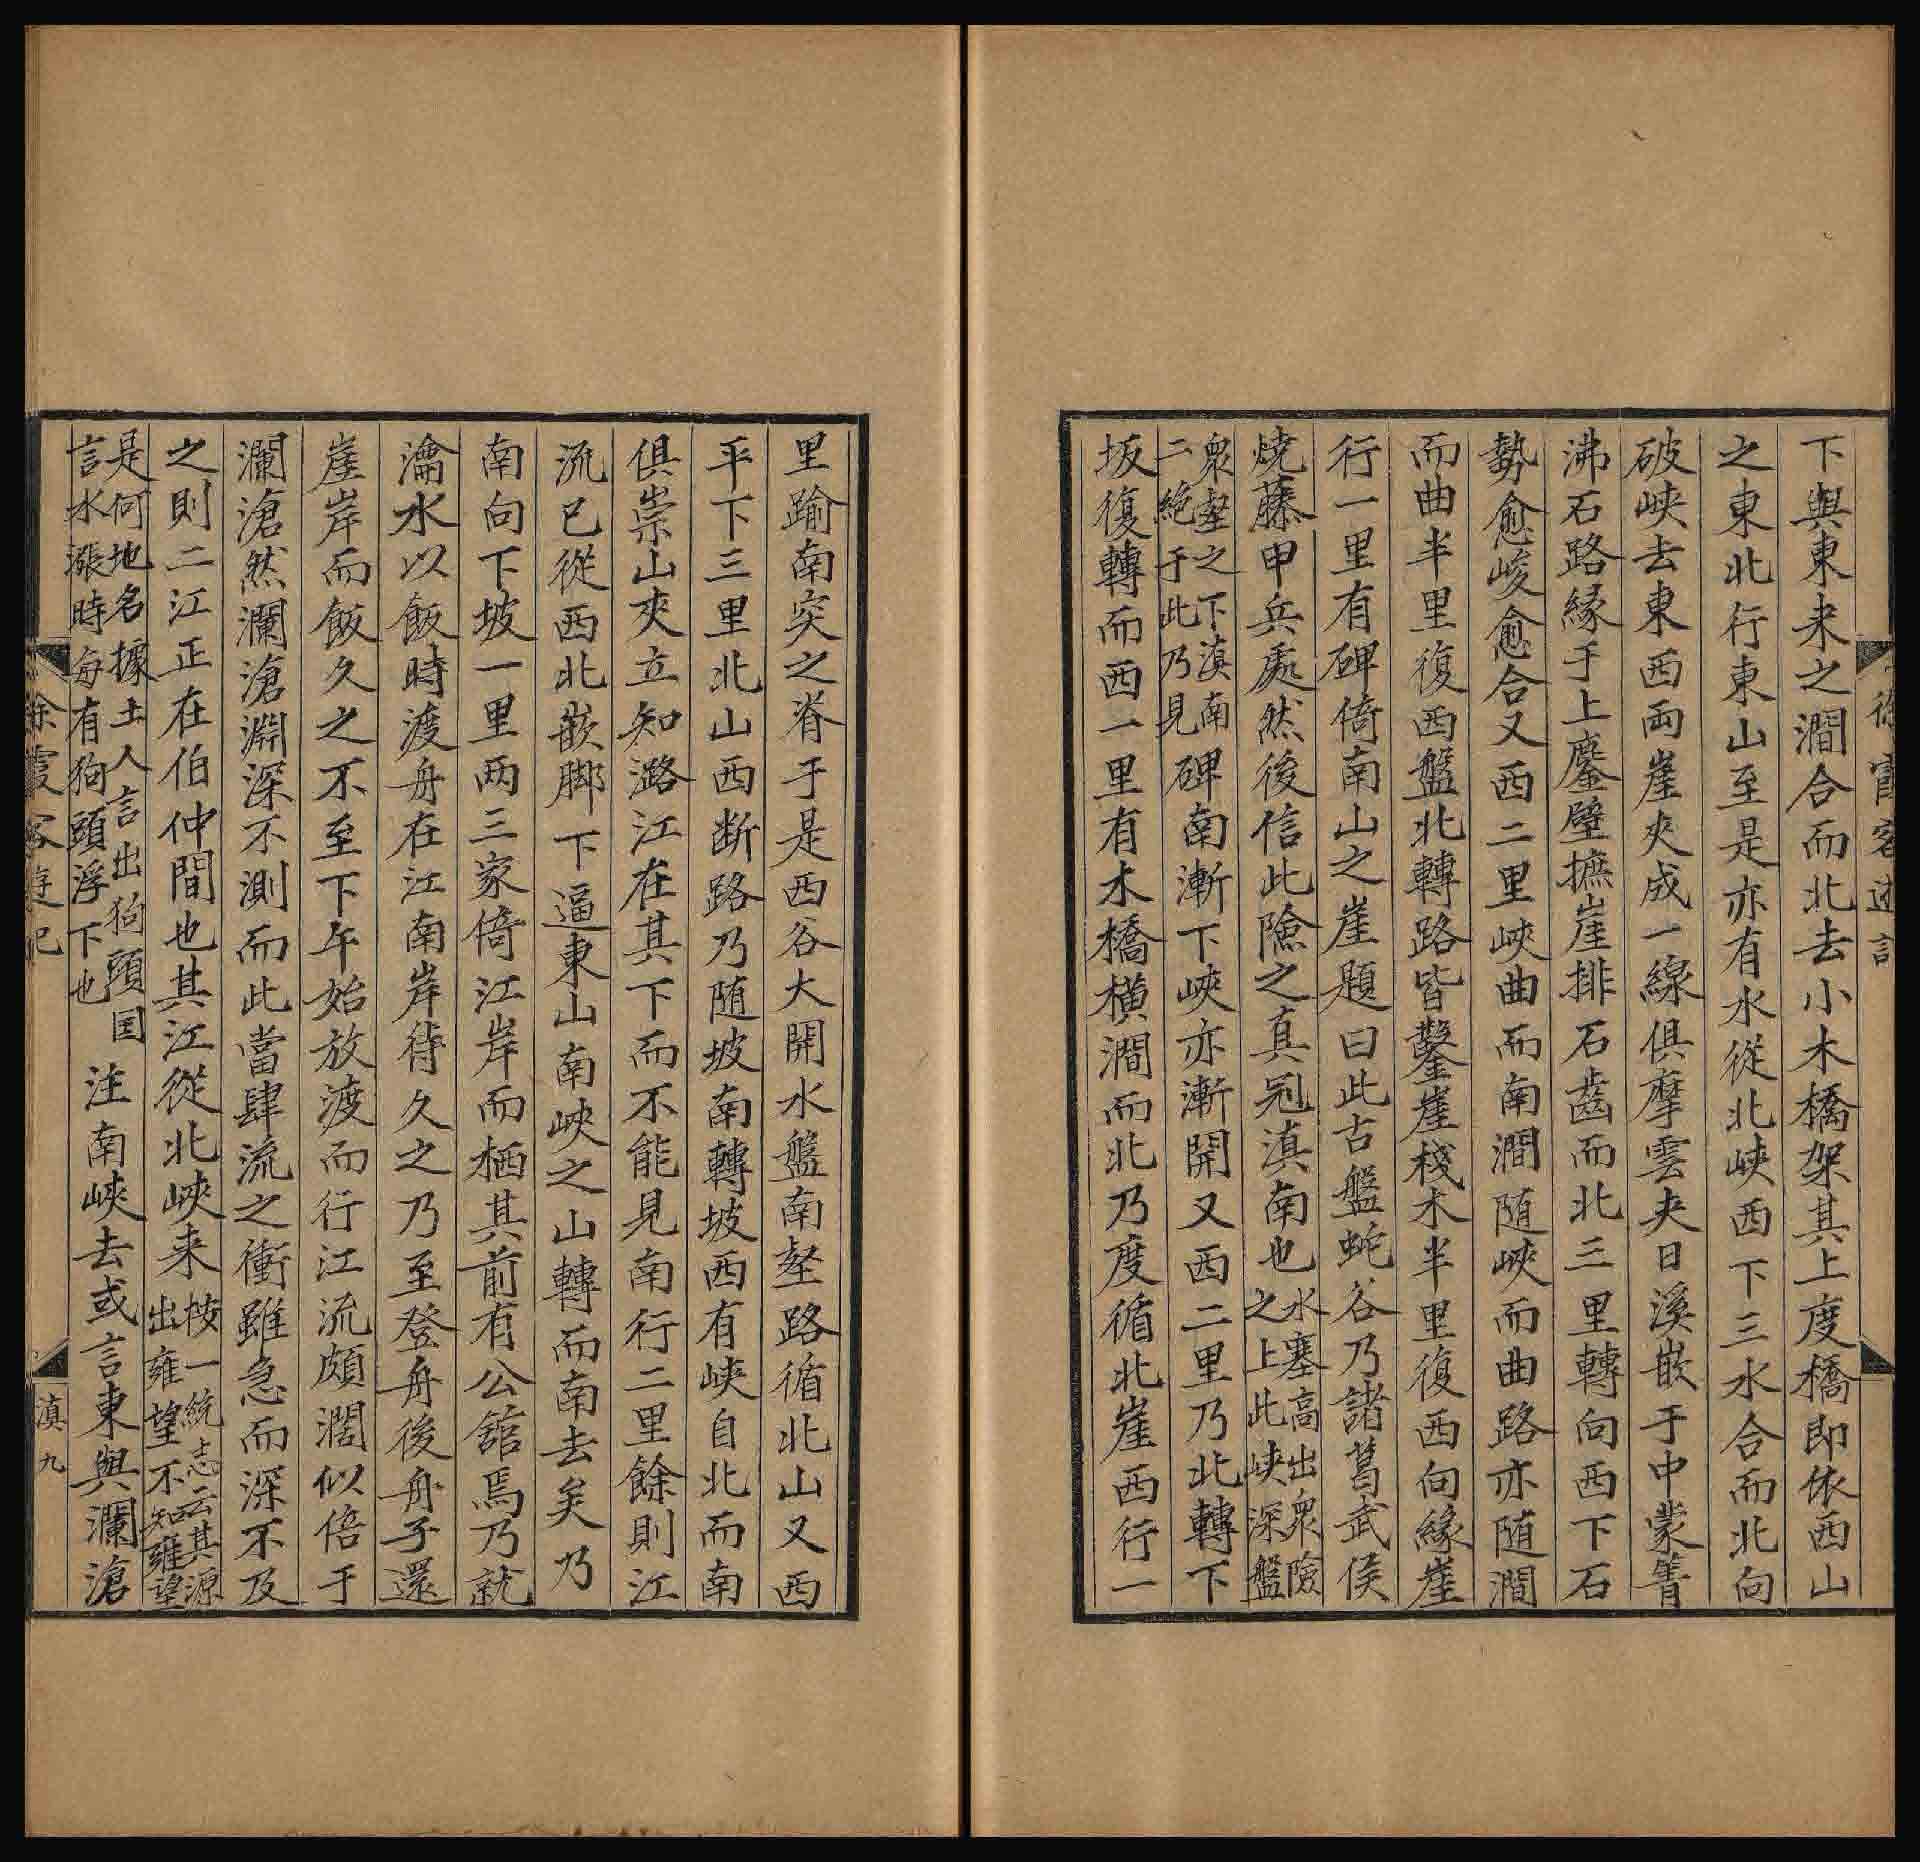 下與東来之澗合而北去小木橋架其上度橋即依西山
之東北行東山至是亦有水從北峽西下三水合而北向
破峽去東西両崖夾成一線俱摩雲夾日溪嵌于中蒙箐
沸石路緣于上鏖壁摭崖排石齒而北三里轉向西下石
勢愈峻愈合又西二里峽曲而南澗随峽而曲路亦随澗
而曲半里復西盤北轉路皆鑿崖棧木半里復西向緣崖
行一里有碑倚南山之崖題曰此古盤蛇谷乃諸葛武侯
燒藤甲兵處然後信此險之真冠滇南也水塞高出衆險
之上此峽深盤
衆壑之下滇南
二絶于此乃見碑南漸下峽亦漸開又西二里乃北轉下
坂復轉而西一里有木橋橫澗而北乃度循北崖西行一
里踰南突之脊于是西谷大開水盤南壑路循北山又西
平下三里北山西断路乃随坡南轉坡西有峽自北而南
俱崇山夾立知潞江在其下而不能見南行二里餘則江
流已從西北嵌脚下逼東山南峽之山轉而南去矣乃
南向下坡一里両三家倚江岸而栖其前有公舘焉乃就
瀹水以飯時渡舟在江南岸待久之乃至登舟後舟子還
崖岸而飯久之不至下午始放渡而行江流頗濶似倍于
瀾滄然瀾滄淵深不測而此當肆流之衝雖急而深不及
之則二江正在伯仲間也其江從北峽来桉一統志云其源
出雍望不知雍望
是何地名據土人言出狗頭国
言水漲時每有狗頭浮下也注南峽去或言東與瀾滄
徐霞客遊記
滇九